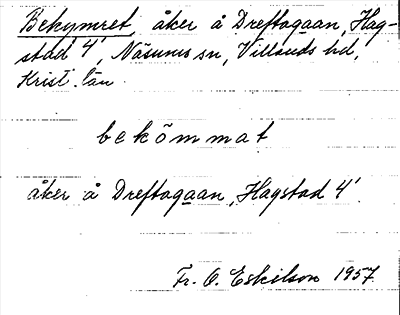 Bekymret, åker å Dreftagaan, Hag-
stad 4', Näsums sn, Villands hd,
Krist. län
bekömmat
åker å Dreftagaan, Hagstad 4'
Fr. O. Eskilson 1957